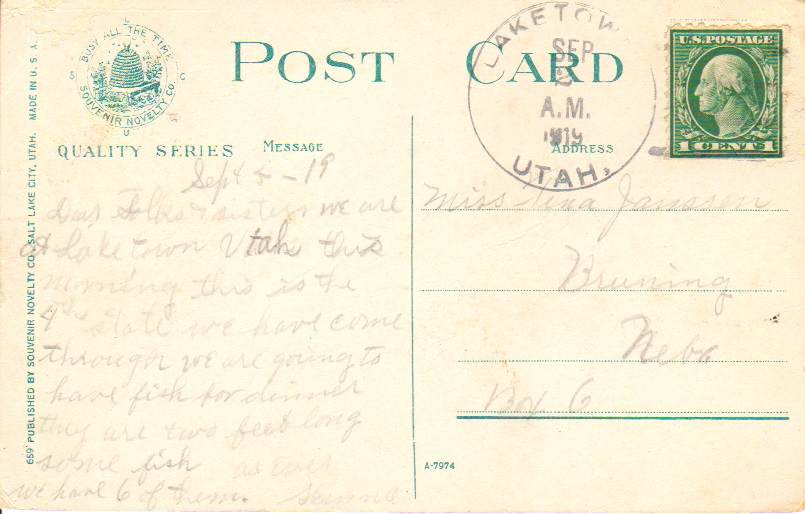 BUSY ALL THE TIME
SOUVENIR NOVELTY CO.
S L C U
POST CARD
QUALITY SERIES
MESSAGE
ADDRESS
LAKETOWN
SEP
A.M.
1919
UTAH.
U.S. POSTAGE
1 CENT 1
659 PUBLISHED BY SOUVENIR NOVELTY CO. SALT LAKE CITY, UTAH. MADE IN U. S. A.
A-7974
Sept 5 - 19
Dear Folks & sisters we are
at Lake town Utah this
morning this is the
4th state we have come
through we are going to
have fish for dinner
they are two feet long
some fish as ever
we have 6 of them.
Miss Tena Janssen
Bruning
Nebr
Box 6